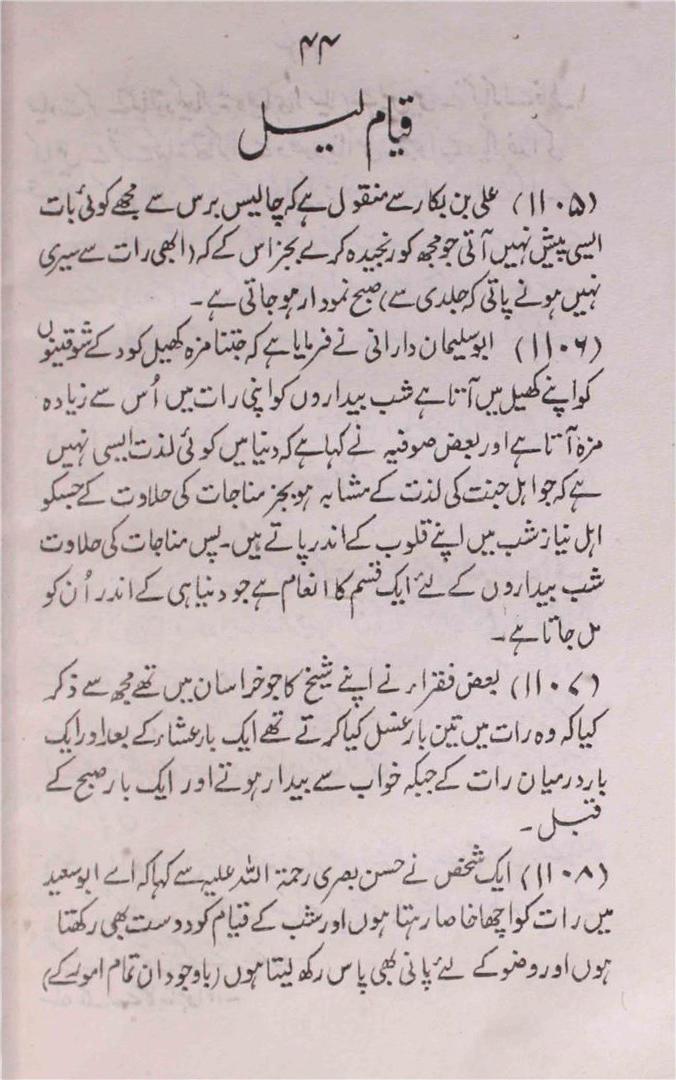 ۴۴
قیام لیل
(۱۱۰۵) علی بن بکار سے منقول ہے کہ چالیس برس سے مجھے کوئی بات
ایسی پیش نہیں آتی جو مجھ کو رنجیدہ کرے بجز اس کے کہ (ابھی رات سے سیری
نہیں ہونے پاتی کہ جلدی سے) صبح نمودار ہوجاتی ہے۔
(۱۱۰۶) ابو سلیمان دارانی نے فرمایا ہے کہ جتنا مزہ کھیل کود کے شوقینوں
کو اپنے کھیل میں آتا ہے شب بیداروں کو اپنی رات میں اُس سے زیادہ
مزہ آتا ہے اور بعض صوفیہ نے کہا ہے کہ دنیا میں کوئی لذت ایسی نہیں
ہے کہ جو اہل جنت کی لذت کے مشابہ ہو بجز مناجات کی حلاوت کے جسکو
اہل نیاز شب میں اپنے قلوب کے اندر پاتے ہیں۔ پس مناجات کی حلاوت
شب بیداروں کے لئے ایک قسم کا انعام ہے جو دنیا ہی کے اندر اُن کو
مل جاتا ہے۔
(۱۱۰۷) بعض فقراء نے اپنے شیخ کا جو خراسان میں تھے مجھ سے ذکر
کیا کہ وہ رات میں تین بار غسل کیا کرتے تھے ایک بار عشاء کے بعد اور ایک
بار درمیان رات کے جبکہ خواب سے بیدار ہوتے اور ایک بار صبح کے
قبل۔
(۱۱۰۸) ایک شخص نے حسن بصری رحمۃ اللہ علیہ سے کہا کہ اے ابو سعید
میں رات کو اچھا خاصا رہتا ہوں اور شب کے قیام کو دوست بھی رکھتا
ہوں اور وضو کے لئے پانی بھی پاس رکھ لیتا ہوں (باوجود ان تمام امور کے)